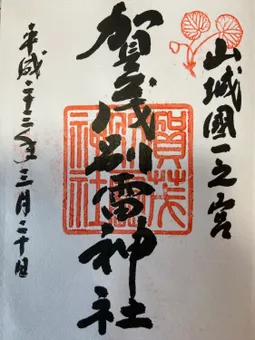 山城國一之宮
賀茂別雷神社
平成二十三年三月二十日
賀茂別雷神社